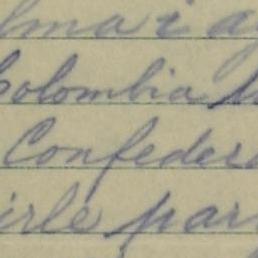 lma i ag
Colombia
Confeder
irle par